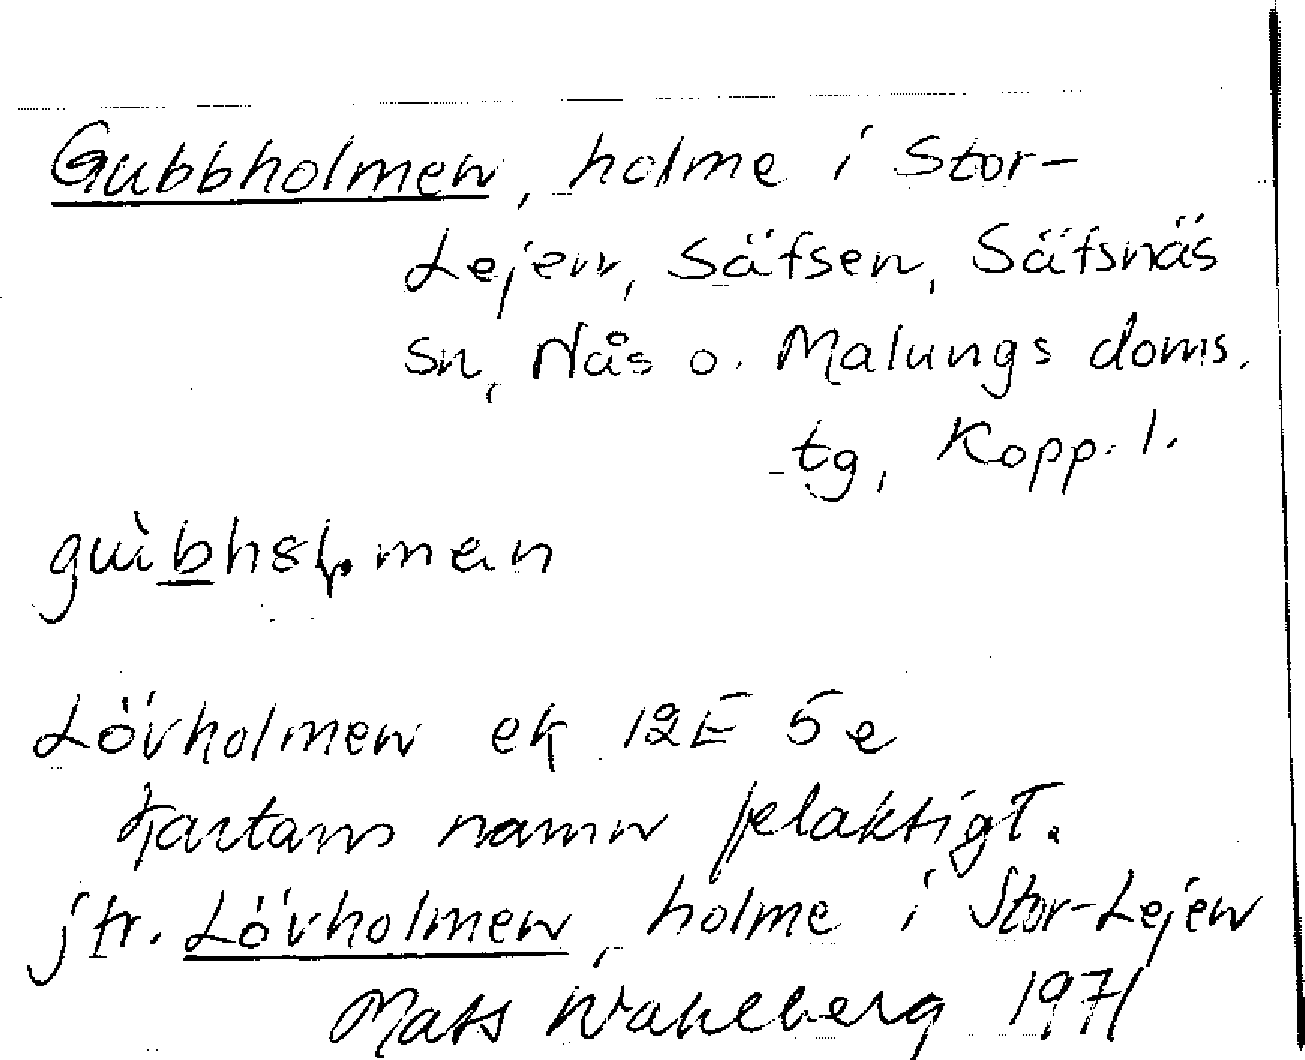 Gubbholmen, holme i Stor-
Lejen, Säfsen, Säfsnäs
sn, Nås o. Malungs doms.
tg, Kopp. l.
Lövholmen ek 12E 5e
Kartans namn felaktigt.
jfr. Lövholmen, holme i Stor-Lejen
Mats Wahlberg 1971